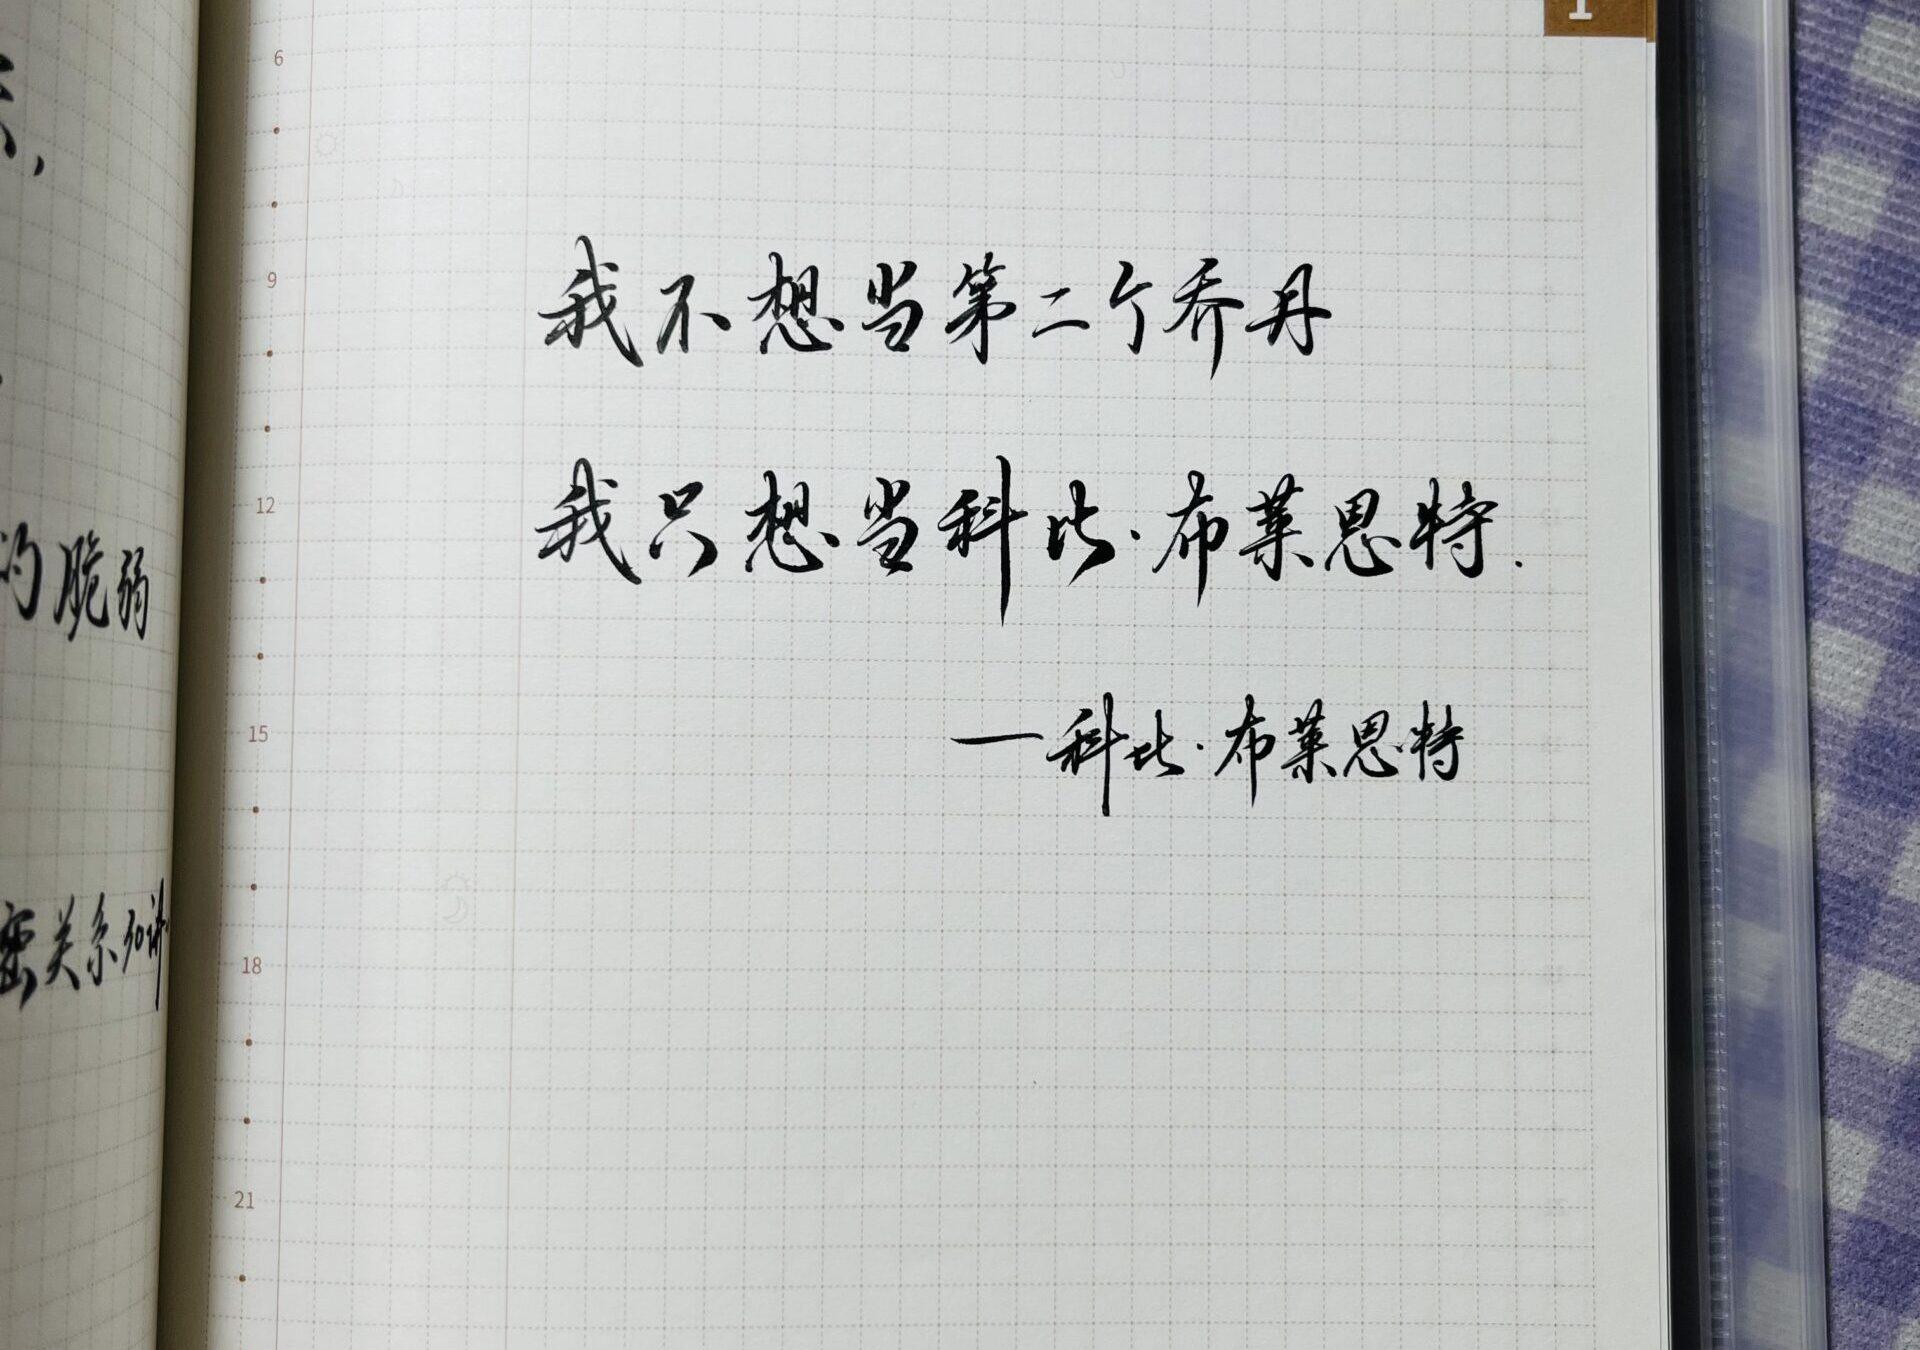 的脆弱
密关系如讲
1
6
9
我不想当第二个乔丹
12
我只想当科比·布莱恩特.
15
—科比·布莱恩特
18
21